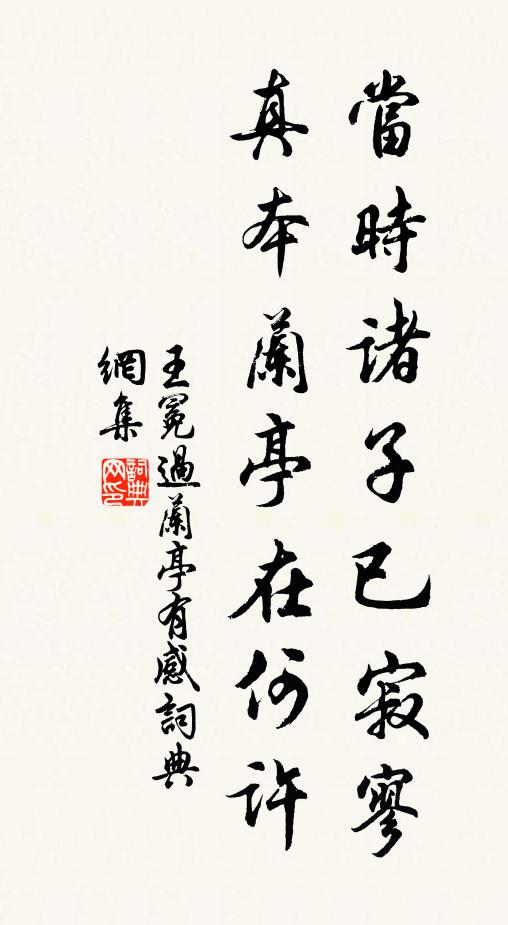 當時諸子已寂寥
真本蘭亭在何許
王冕過蘭亭有感詞典
網集
詞典网印